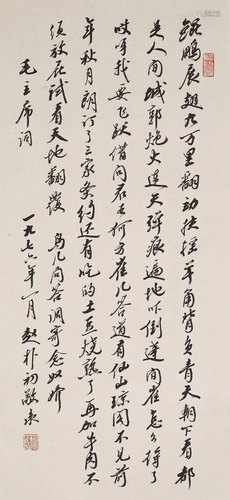 鯤鵬展翅九万里翻動扶摇羊角背負青天朝下看都
是人間城郭炮火連天彈痕遍地吓倒蓬間雀怎么得了
哎呀我要飞跃借問君去何方雀儿答道有仙山琼閣不見前
年秋月朗订了三家条約还有吃的土豆燒熟了再加牛肉不
須放屁試看天地翻覆 鸟儿问答調寄念奴嬌
毛主席词
一九七六年一月趙朴初敬录